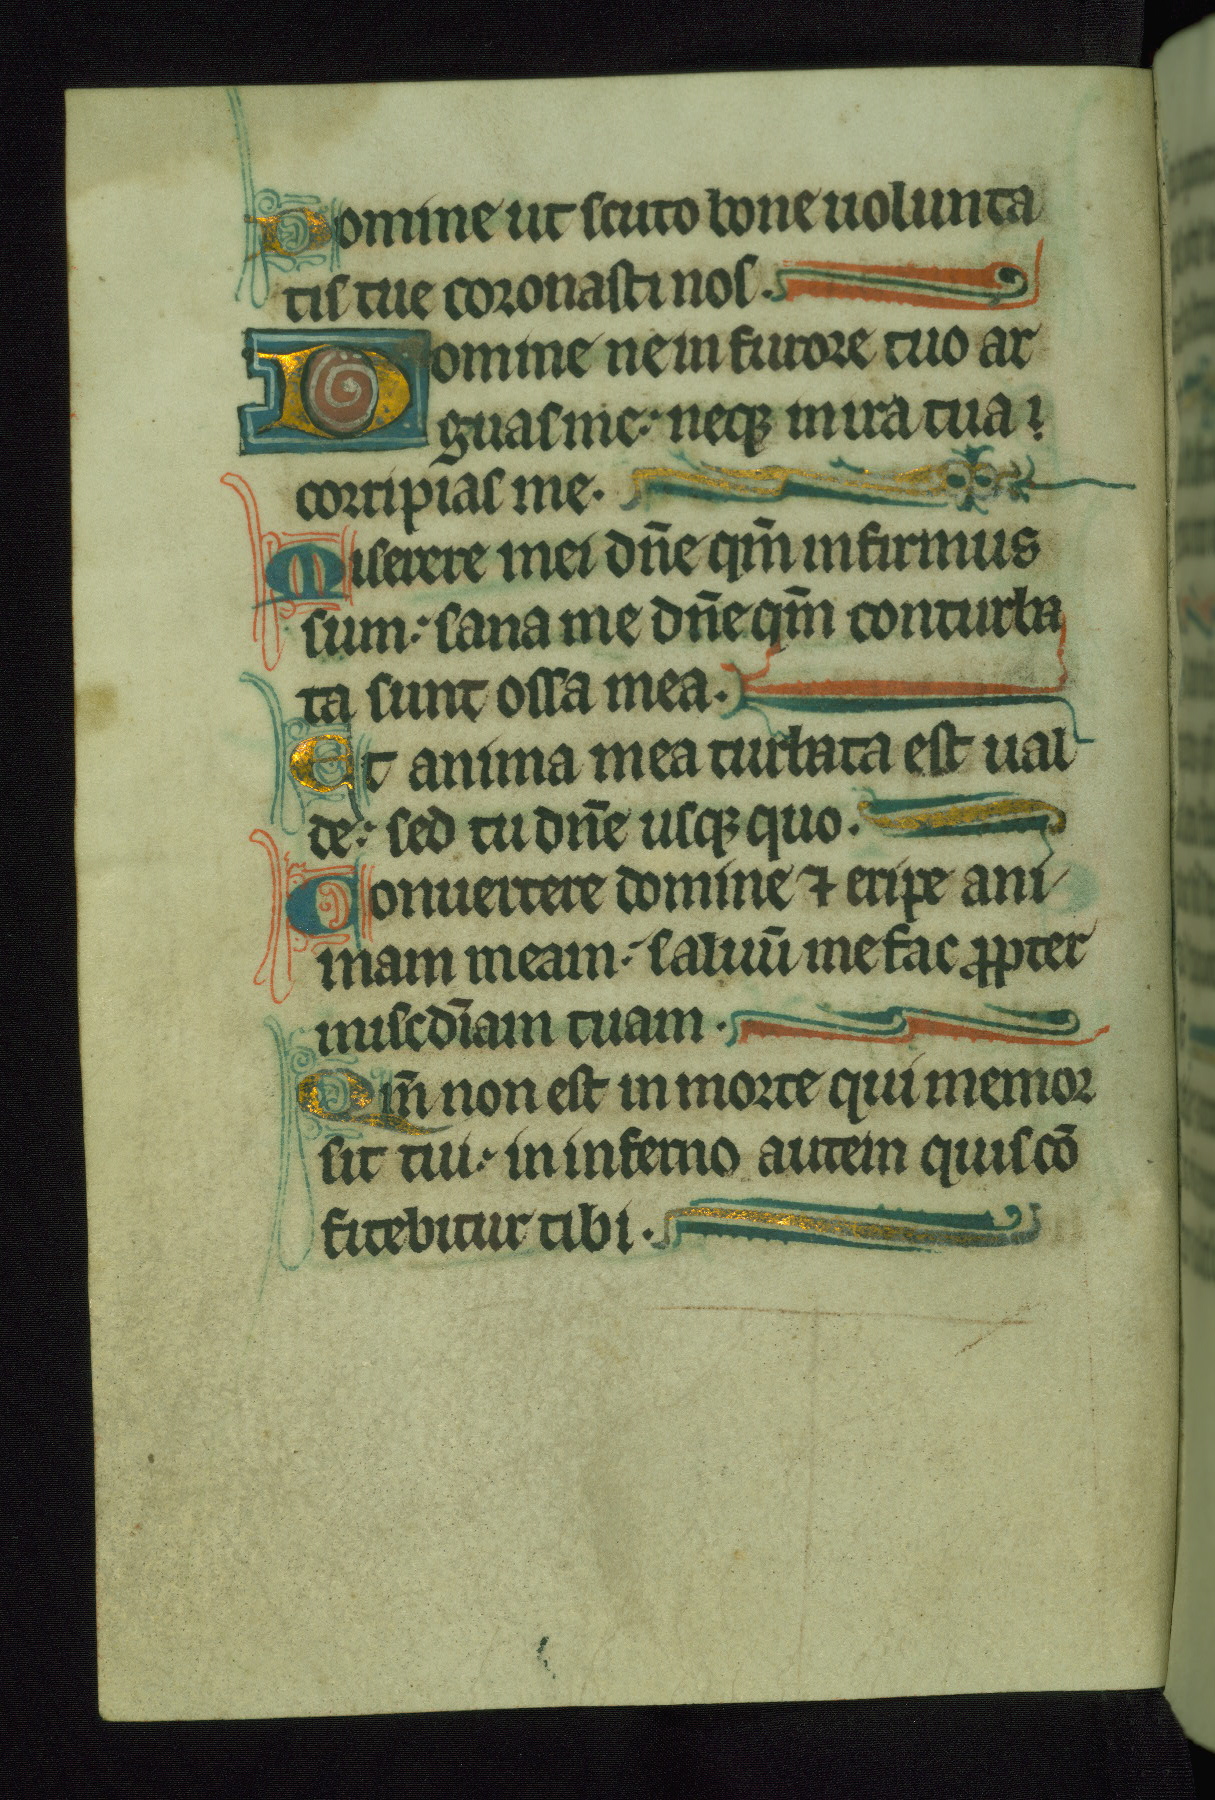 Domine ut scuto bone uolunta
tis tue coronasti nos.
Domine ne in furore tuo ar
guas me: neqꝫ in ira tua
corripias me.
Miserere mei dn̄e qm̄ infirmus
sum: sana me dn̄e qm̄ conturba
ta sunt ossa mea.
Et anima mea turbata est ual
de: sed tu dn̄e usqꝫ quo.
Conuertere domine ⁊ eripe ani
mam meam: saluū me fac ꝓpter
miscdīam tuam.
Qm̄ non est in morte qui memor
sit tui: in inferno autem quis cō
fitebitur tibi.